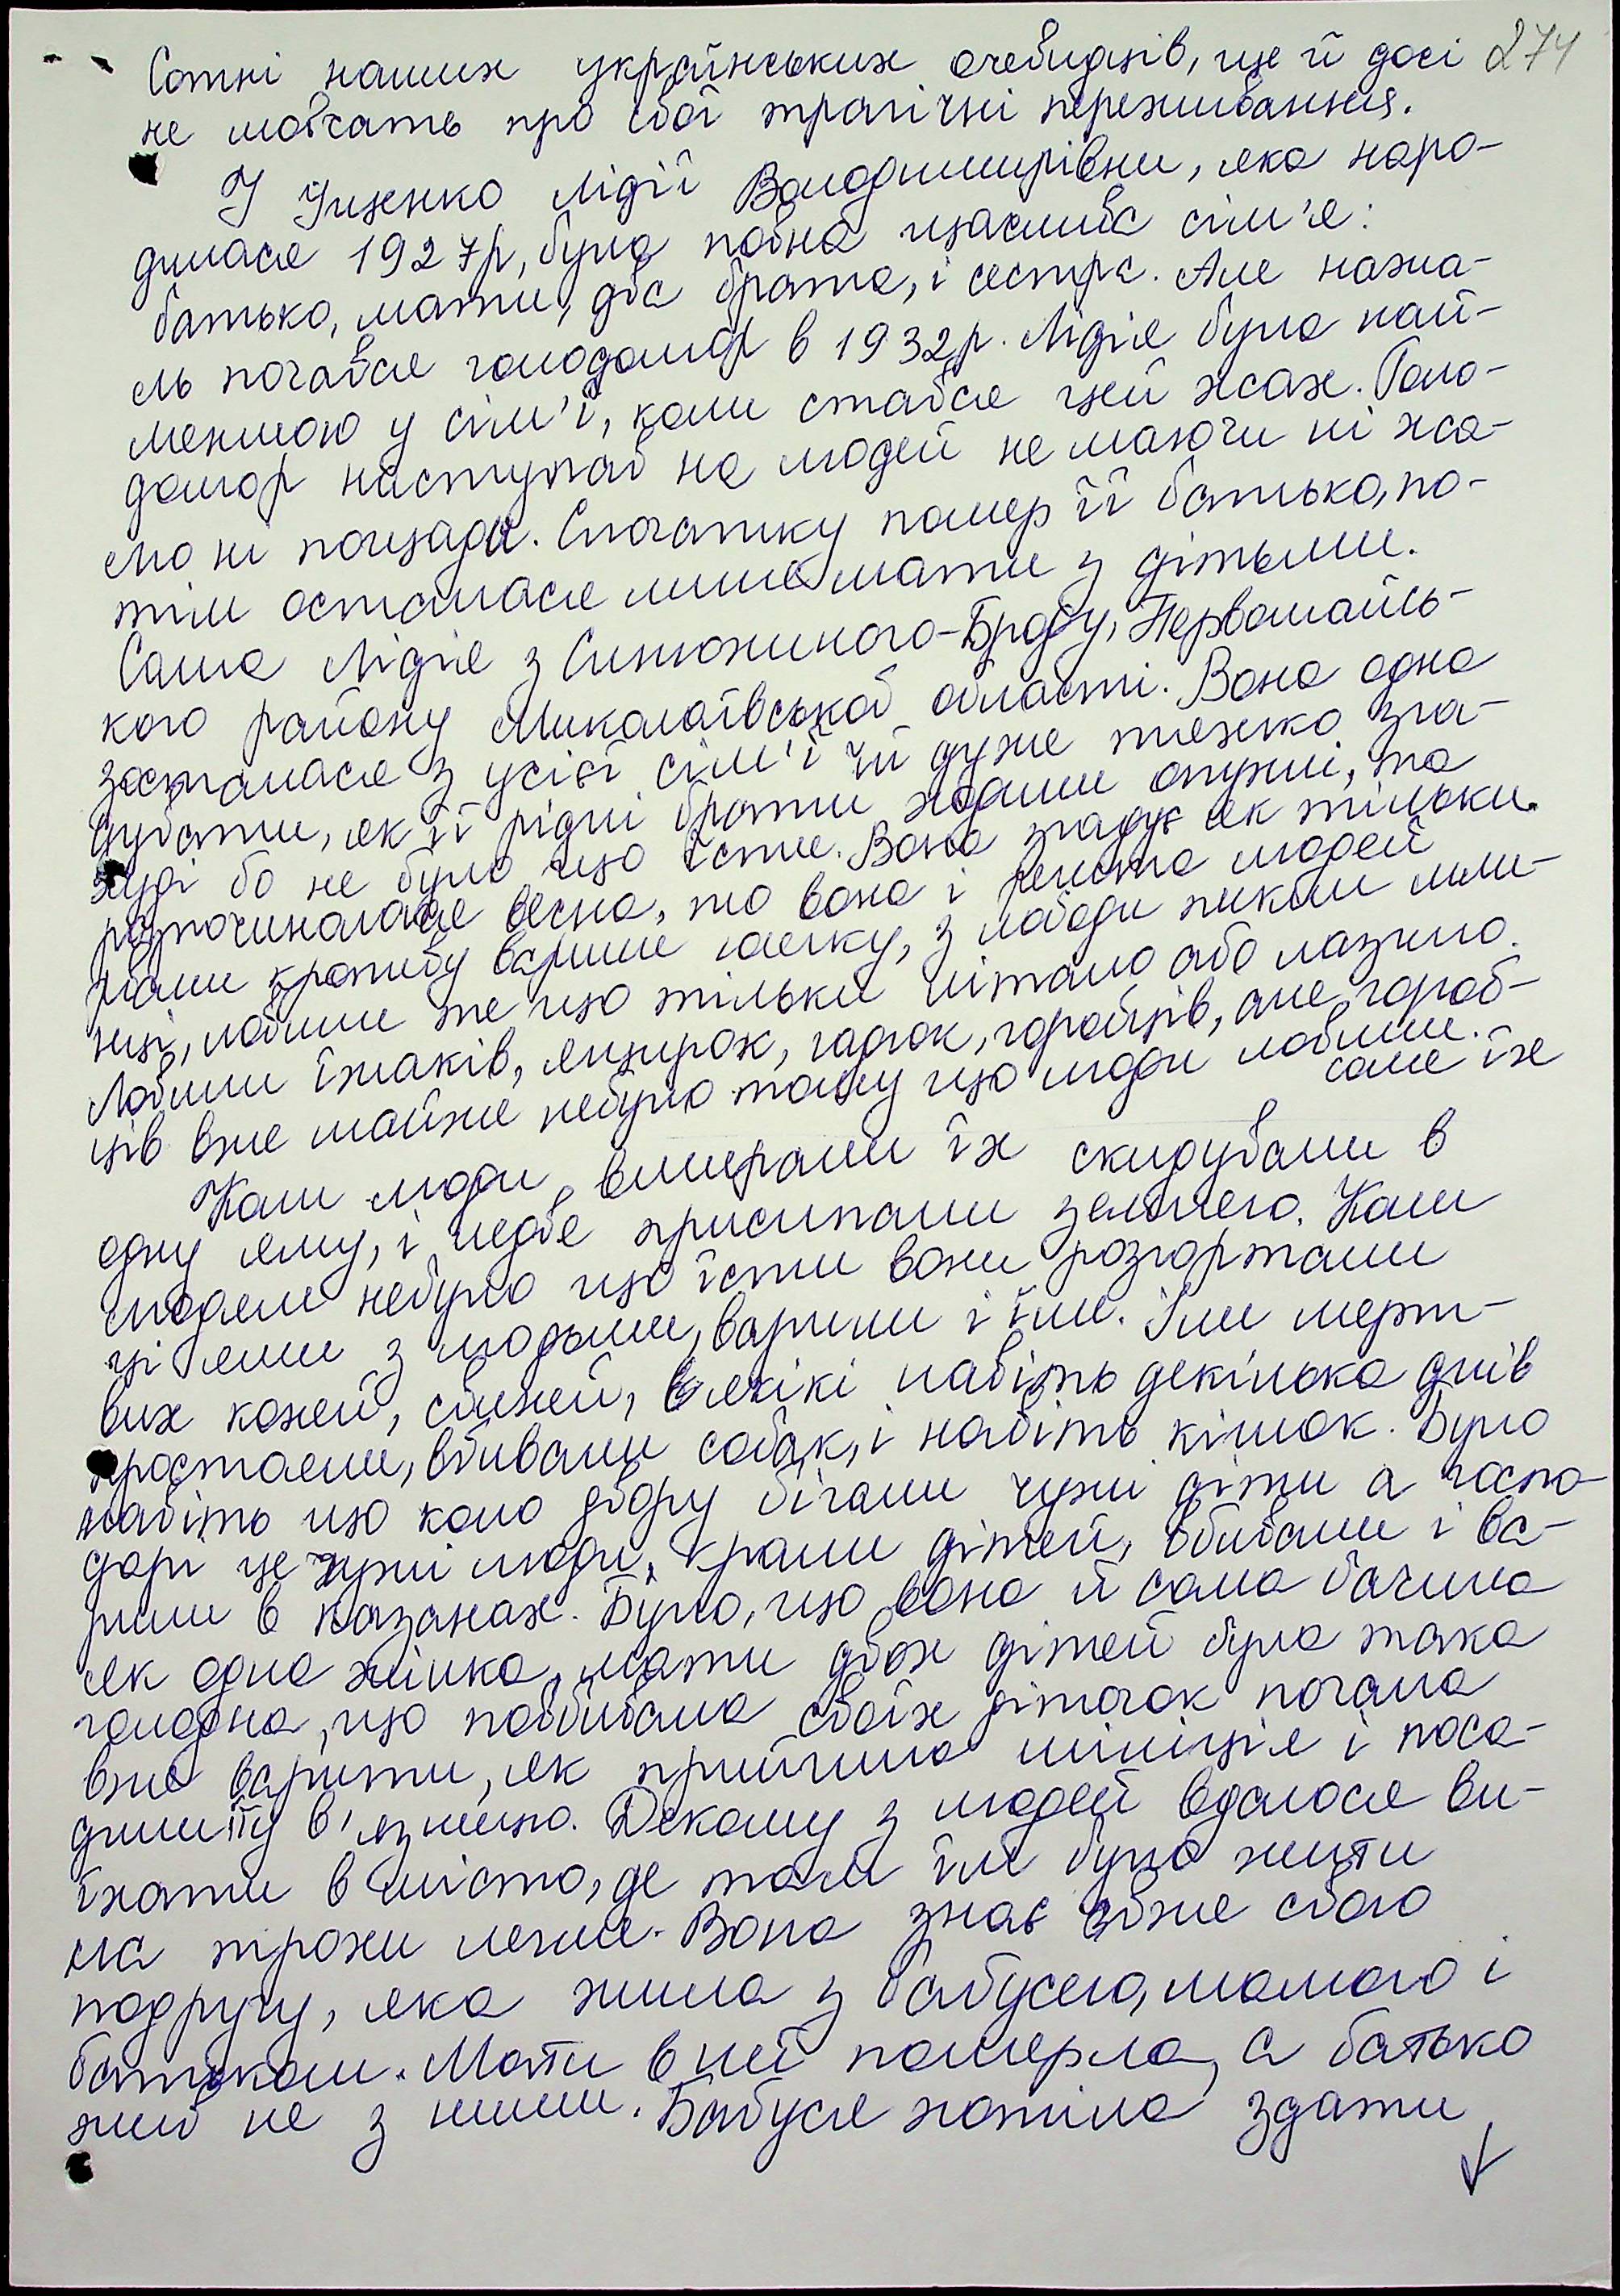 Сотні наших українських очевидців, ще й досі 274
не мовчать про свої трагічні переживання.
У Іщенко Лідії Володимирівни, яка наро-
дилася 1927р, була повна щаслива сім'я:
батько, мати, два брата, і сестра. Але нажа-
ль почався голодомор в 1932р. Лідія була най-
меншою у сім'ї, коли стався цей жах. Голо-
домор наступав на людей не маючи ні жа-
лю ні пощади. Спочатку помер її батько, по-
тім осталася лише мати з дітьми.
Сама Лідія з Синюхиного-Броду, Первомайсь-
кого району Миколаївської області. Вона одна
зосталася з усієї сім'ї їй дуже тяжко зга-
дувати, як її рідні брати ходили опухлі, та
худі бо не було що їсти. Вона згадує як тільки
розпочиналася весна, то вона і решта людей
рвали кропиву варили юшку, з лободи пикли мли-
нці, ловили те що тільки літало або лазило.
Ловили їжаків, ящирок, гадюк, горобців, але гороб-
ців вже майже небуло тому що люди ловили
саме їх
Коли люди вмирали їх скидували в
одну яму, і ледве присипали землею. Коли
людям небуло що їсти вони розгортали
ці ями з людьми, варили і їли. Їли мерт-
вих коней, свиней, в які навіть декілька днів
простояли, вбивали собак, і навіть кішок. Було
навіть що коло двору бігали чужі діти а госпо-
дарі це чужі люди, крали дітей, вбивали і ва-
рили в казанах. Було, що вона й сама бачила
як одна жінка, мати двох дітей була така
голодна, що повбивала своїх діточок почала
вже варити, як прийшла міліція і поса-
дили її у в'язницю. Декому з людей вдалося ви-
їхати в місто, де там їм було жити
на трохи легше. Вона знає свою
подругу, яка жила з бабусею, мамою і
батьком. Мати в неї померла, а батько
жив не з ними. Бабуся хотіла здати
↓